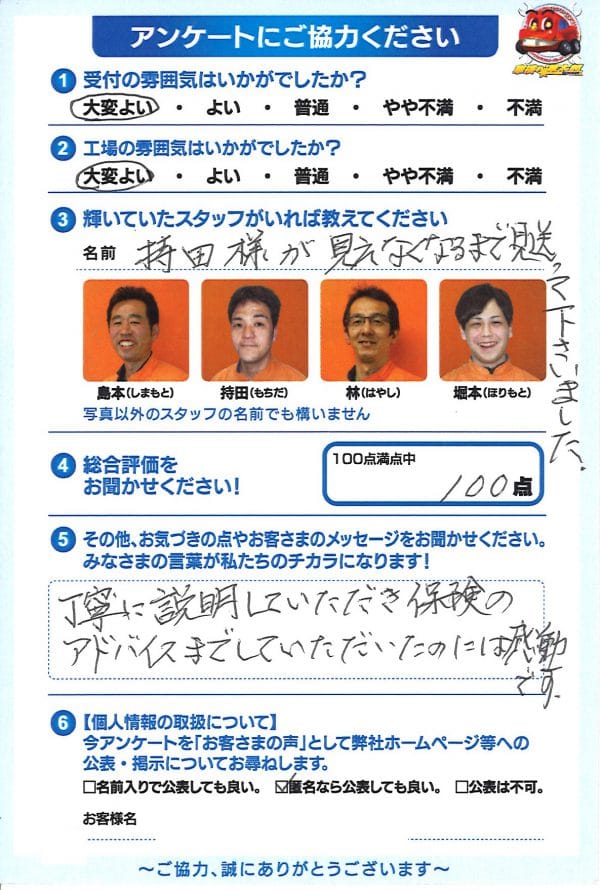 アンケートにご協力ください
1 受付の雰囲気はいかがでしたか?
大変よい ・ よい ・ 普通 ・ やや不満 ・ 不満
2 工場の雰囲気はいかがでしたか?
大変よい ・ よい ・ 普通 ・ やや不満 ・ 不満
3 輝いていたスタッフがいれば教えてください
名前 持田様が見えなくなるまで見送って下さいました。
島本(しまもと) 持田(もちだ) 林(はやし) 堀本(ほりもと)
写真以外のスタッフの名前でも構いません
4 総合評価を
お聞かせください!
100点満点中
100点
5 その他、お気づきの点やお客さまのメッセージをお聞かせください。
みなさまの言葉が私たちのチカラになります!
丁寧に説明していただき保険の
アドバイスまでしていただいたのには感動
です。
6 【個人情報の取扱について】
今アンケートを「お客さまの声」として弊社ホームページ等への
公表・掲示についてお尋ねします。
□名前入りで公表しても良い。 ☑匿名なら公表しても良い。 □公表は不可。
お客様名
〜ご協力、誠にありがとうございます〜